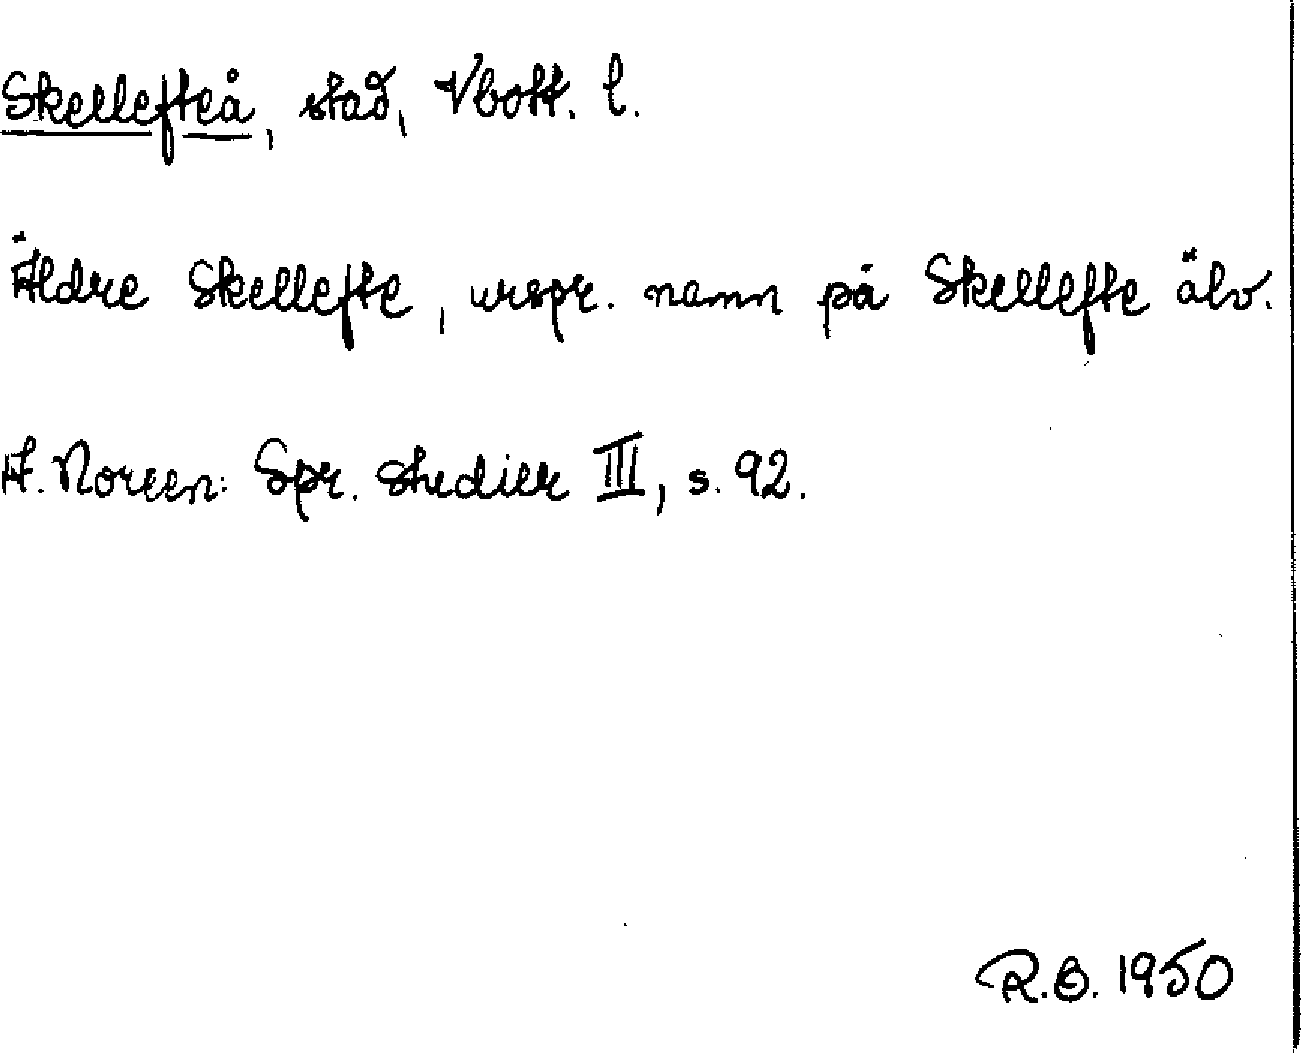 Skellefteå, stad, Vbott. l.
Äldre Skellefte, urspr. namn på Skellefte älv.
A. Noreen: Spr. studier III, s. 92.
R.B. 1950